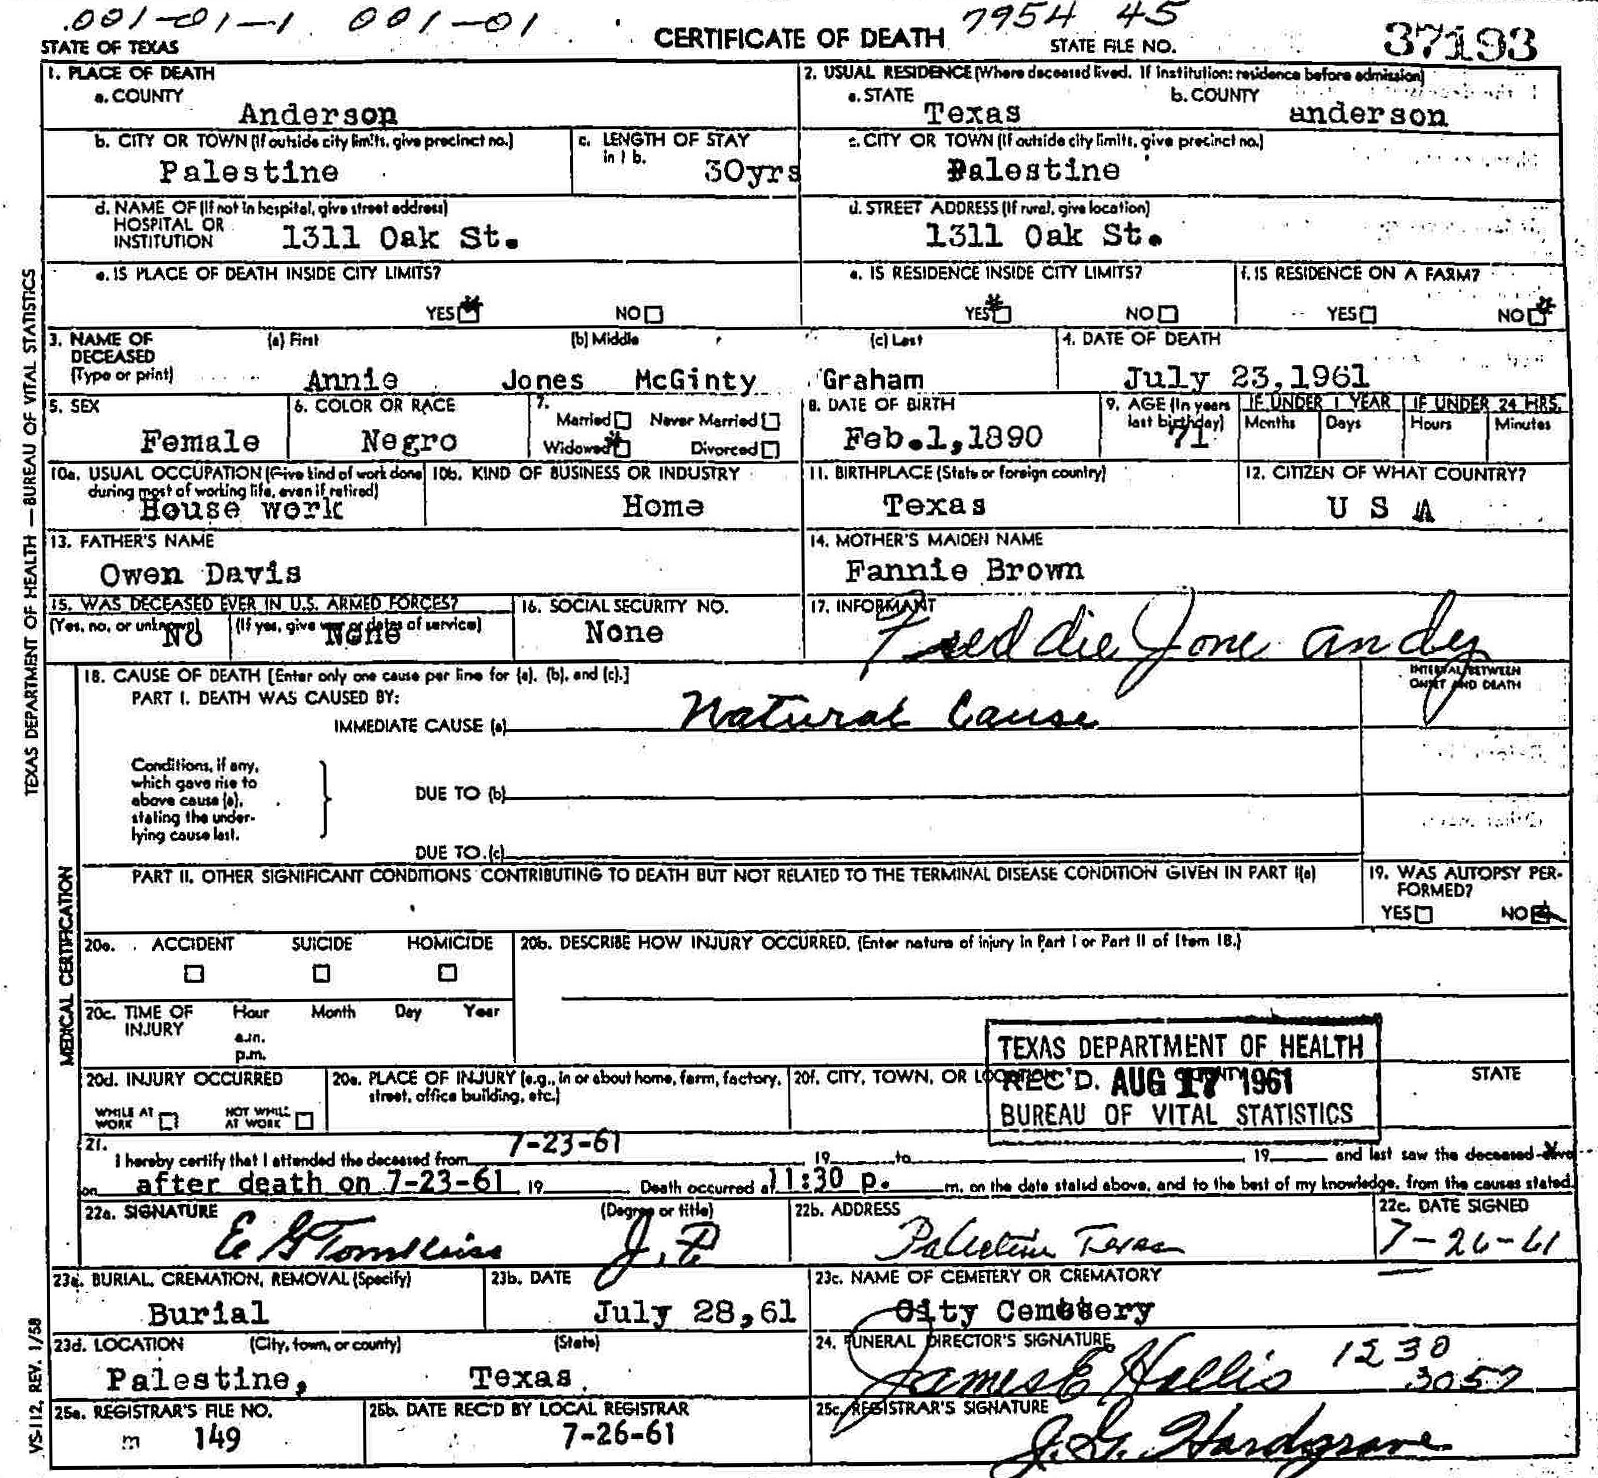 .001-01-1 001-01 7954 45
STATE OF TEXAS CERTIFICATE OF DEATH STATE FILE NO. 37193
1. PLACE OF DEATH
a. COUNTY
Anderson
2. USUAL RESIDENCE (Where deceased lived. If institution: residence before admission)
a. STATE b. COUNTY
Texas anderson
b. CITY OR TOWN (If outside city limits, give precinct no.)
Palestine
c. LENGTH OF STAY
in 1 b.
30yrs
c. CITY OR TOWN (If outside city limits, give precinct no.)
Palestine
d. NAME OF (If not in hospital, give street address)
HOSPITAL OR
INSTITUTION 1311 Oak St.
d. STREET ADDRESS (If rural, give location)
1311 Oak St.
e. IS PLACE OF DEATH INSIDE CITY LIMITS?
YES NO
e. IS RESIDENCE INSIDE CITY LIMITS?
YES NO
f. IS RESIDENCE ON A FARM?
YES NO
3. NAME OF
DECEASED
(Type or print)
(a) First (b) Middle (c) Last
Annie Jones McGinty Graham
4. DATE OF DEATH
July 23,1961
5. SEX
Female
6. COLOR OR RACE
Negro
7.
Married Never Married
Widowed Divorced
8. DATE OF BIRTH
Feb.1,1890
9. AGE (In years
last birthday)
71
IF UNDER 1 YEAR IF UNDER 24 HRS.
Months Days Hours Minutes
10a. USUAL OCCUPATION (Give kind of work done
during most of working life, even if retired)
House work
10b. KIND OF BUSINESS OR INDUSTRY
Home
11. BIRTHPLACE (State or foreign country)
Texas
12. CITIZEN OF WHAT COUNTRY?
U S A
13. FATHER'S NAME
Owen Davis
14. MOTHER'S MAIDEN NAME
Fannie Brown
15. WAS DECEASED EVER IN U.S. ARMED FORCES?
(Yes, no, or unknown) (If yes, give war or dates of service)
No None
16. SOCIAL SECURITY NO.
None
17. INFORMANT
Freddie Jone andy
18. CAUSE OF DEATH [Enter only one cause per line for (a), (b), and (c).]
INTERVAL BETWEEN
ONSET AND DEATH
PART I. DEATH WAS CAUSED BY:
IMMEDIATE CAUSE (a) Natural Cause
Conditions, if any,
which gave rise to
above cause (a),
stating the under-
lying cause last.
DUE TO (b)
DUE TO (c)
PART II. OTHER SIGNIFICANT CONDITIONS CONTRIBUTING TO DEATH BUT NOT RELATED TO THE TERMINAL DISEASE CONDITION GIVEN IN PART I(a)
19. WAS AUTOPSY PER-
FORMED?
YES NO
20a. ACCIDENT SUICIDE HOMICIDE
20b. DESCRIBE HOW INJURY OCCURRED. (Enter nature of injury in Part I or Part II of Item 18.)
20c. TIME OF
INJURY
Hour Month Day Year
a.m.
p.m.
20d. INJURY OCCURRED
WHILE AT
WORK
NOT WHILE
AT WORK
20e. PLACE OF INJURY (e.g., in or about home, farm, factory,
street, office building, etc.)
20f. CITY, TOWN, OR LOCATION STATE
TEXAS DEPARTMENT OF HEALTH
REC'D. AUG 17 1961
BUREAU OF VITAL STATISTICS
21.
7-23-61
I hereby certify that I attended the deceased from 19 to 19 and last saw the deceased alive
on after death on 7-23-61 19 Death occurred at 11:30 p. m. on the date stated above, and to the best of my knowledge, from the causes stated.
22a. SIGNATURE (Degree or title)
E G Tomkins J.P.
22b. ADDRESS
Palestine Texas
22c. DATE SIGNED
7-26-61
23a. BURIAL, CREMATION, REMOVAL (Specify)
Burial
23b. DATE
July 28,61
23c. NAME OF CEMETERY OR CREMATORY
City Cemetery
23d. LOCATION (City, town, or county) (State)
Palestine, Texas
24. FUNERAL DIRECTOR'S SIGNATURE
James E Hollis 1230
3057
25a. REGISTRAR'S FILE NO.
m 149
25b. DATE REC'D BY LOCAL REGISTRAR
7-26-61
25c. REGISTRAR'S SIGNATURE
J.G. Hardgrave
TEXAS DEPARTMENT OF HEALTH — BUREAU OF VITAL STATISTICS
MEDICAL CERTIFICATION
VS-112, REV. 1/58